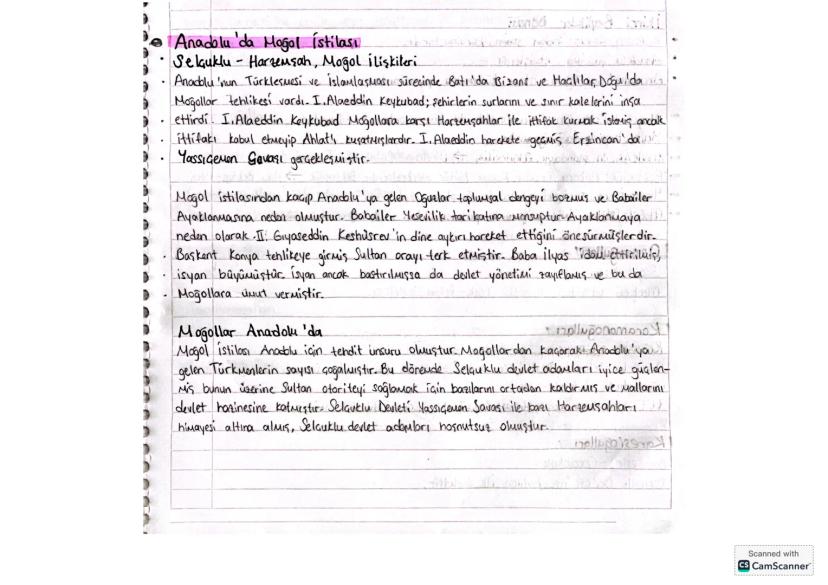 Anadolu'da Moğol İstilası
Selçuklu - Harzemşah, Moğol İlişkileri
Anadolu'nun Türkleşmesi ve İslamlaşması sürecinde Batı'da Bizans ve Haçlılar, Doğu'da
Moğollar tehlikesi vardı. I. Alaeddin Keykubad; şehirlerin surlarını ve sınır kalelerini inşa
ettirdi. I. Alaeddin Keykubad Moğollara karşı Harzemşahlar ile ittifak kurmak istemiş ancak
ittifakı kabul etmeyip Ahlat'ı kuşatmışlardır. I. Alaeddin harekete geçmiş, Erzincan'da
Yassıçemen Savaşı gerçekleşmiştir.
Moğol istilasından kaçıp Anadolu'ya gelen Oğuzlar toplumsal dengeyi bozmuş ve Babailer
Ayaklanmasına neden olmuştur. Babailer Yesevilik tarikatına mensuptur. Ayaklanmaya
neden olarak II. Gıyaseddin Keshüsrev'in dine aykırı hareket ettiğini öne sürmüşlerdir.
Başkent Konya tehlikeye girmiş Sultan orayı terk etmiştir. Baba İlyas idam ettirilmiş,
isyan büyümüştür. İsyan ancak bastırılmışsa da devlet yönetimi zayıflamış ve bu da
Moğollara umut vermiştir.
Moğollar Anadolu'da
Moğol istilası Anadolu için tehdit unsuru olmuştur. Moğollardan kaçarak Anadolu'ya
gelen Türkmenlerin sayısı çoğalmıştır. Bu dönemde Selçuklu devlet adamları iyice güçlen-
miş bunun üzerine Sultan otoriteyi sağlamak için bazılarını ortadan kaldırmış ve mallarını
devlet hazinesine katmıştır. Selçuklu Devleti Yassıçemen Savaşı ile bazı Harzemşahları
himayesi altına almış, Selçuklu devlet adamları hoşnutsuz olmuştur.
Scanned with
CS CamScanner